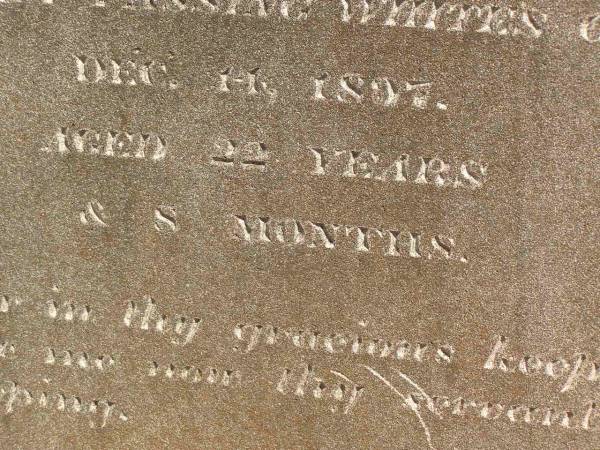 DEC. 14, 1897.
AGED 22 YEARS
& 8 MONTHS.
in thy gracious keep
me now thy servant
ping.